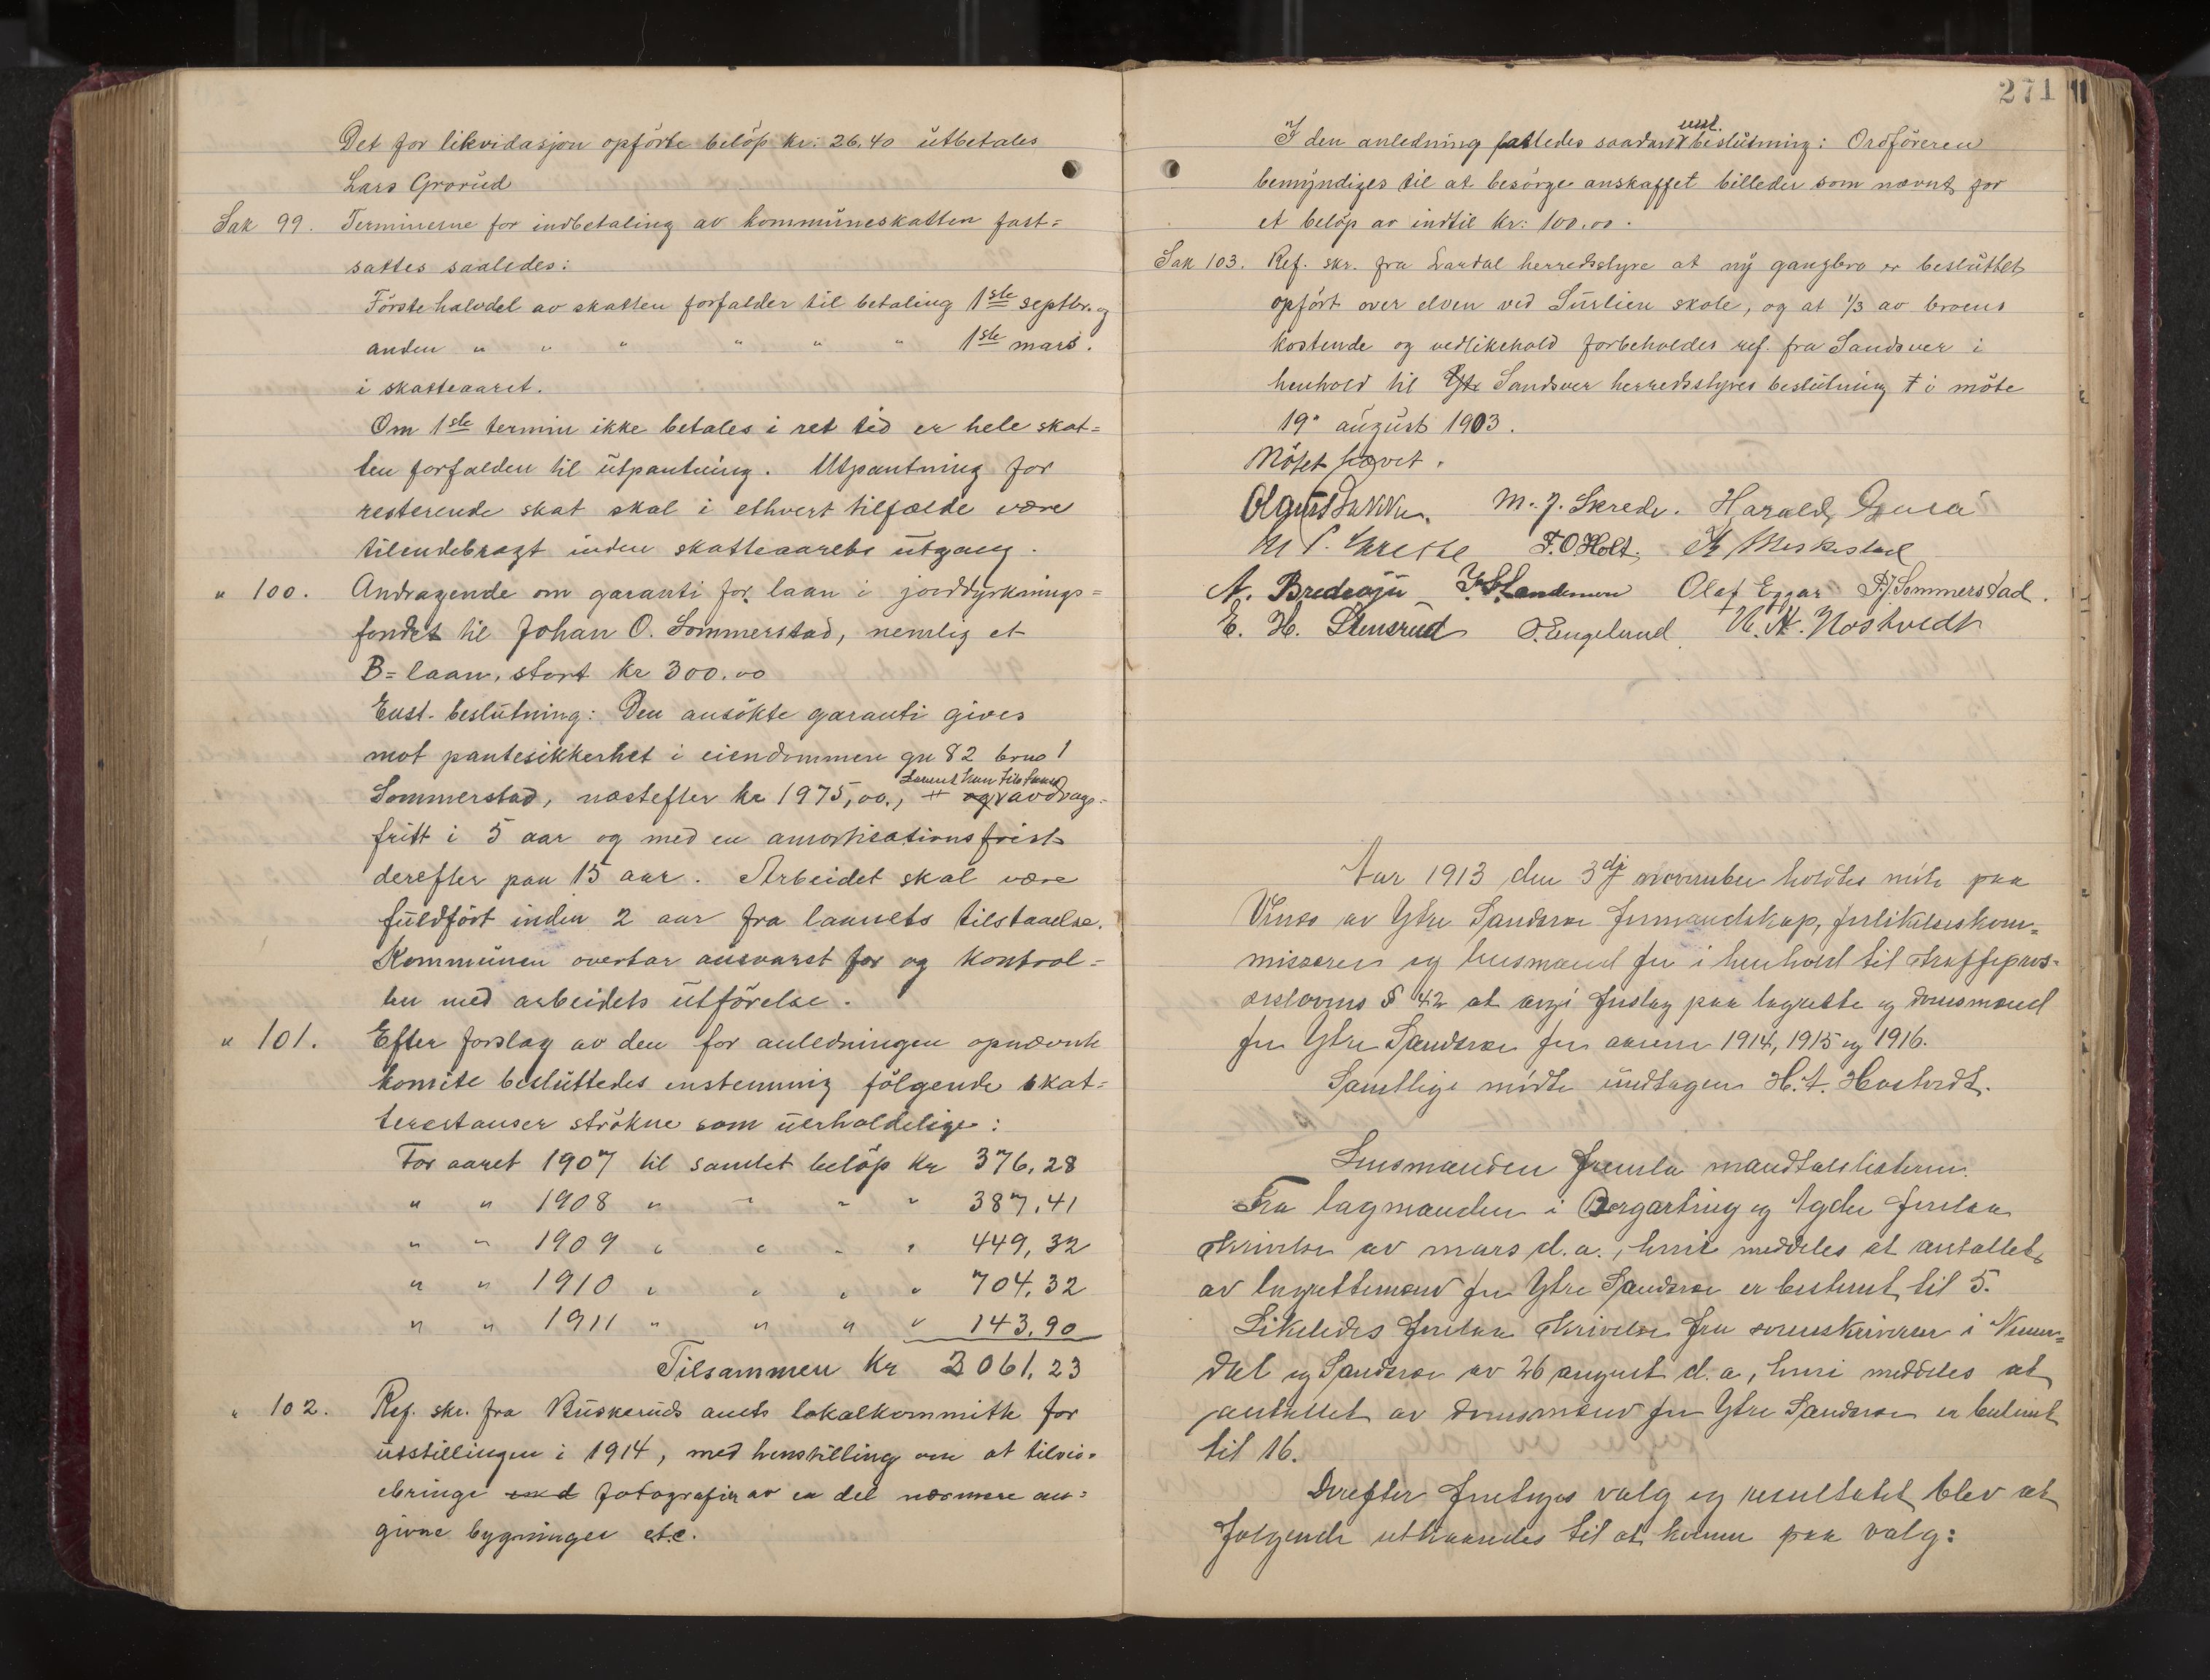 Det for likvidasjon opförte belöp kr. 26.40 utbetales
Lars Grorud
Sak 99. Terminerne for indbetaling av kommuneskatten fast=
sattes saaledes:
Förste halvdel av skatten forfalder til betaling 1ste septbr. og
anden " " " " " " 1ste mars.
i skatteaaret.
Om 1ste termin ikke betales i ret tid er hele skat=
ten forfalden til utpantning. Utpantning for
resterende skat skal i ethvert tilfælde være
tilendebragt inden skatteaarets utgang.
" 100. Andragende om garanti for laan i jorddyrknings=
fondet til Johan O. Sommerstad, nemlig et
B=laan, stort kr 300.00
Enst. beslutning: Den ansökte garanti gives
mot pantesikkerhet i eiendommen gn 82 brno 1
Sommerstad, næstefter kr 1975,00, og avdrags=
fritt i 5 aar og med en amortisationsfrist
derefter paa 15 aar. Arbeidet skal være
fuldfört inden 2 aar fra laanets tilstaaelse.
Kommunen overtar ansvaret for og kontrol=
len med arbeidets utförelse.
" 101. Efter forslag av den for anledningen opnævnte
komite besluttedes enstemmig följgende skat=
terestanser strökne som uerholdelige:
For aaret 1907 til samlet belöp kr 376,28
" " 1908 " " " " 387,41
" " 1909 " " " " 449,32
" " 1910 " " " " 704,32
" " 1911 " " " " 143,90
Tilsammen kr 2061,23
" 102. Ref. skr. fra Buskeruds amts lokalkommitte for
utstillingen i 1914, med henstilling om at tilveie=
bringe end fotografier av en del nærmere an=
givne bygninger etc.
271
I den anledning fattedes saadan enst. beslutning: Ordföreren
bemyndiges til at besörge anskaffet billeder som nævnt for
et belöp av indtil kr. 100.00.
Sak 103. Ref. skr. fra Lardal herredsstyre at ny gangbro er besluttet
opfört over elven ved Surlien skole, og at 1/3 av broens
kostende og vedlikehold forbeholdes ref. fra Sandsver i
henhold til Ytr Sandsver herredsstyres beslutning i möte
19. august 1903.
Mötet hævet.
M. J. Skrede. Harald
T. O Holt.
A. Bredesen Olaf Eggar P J Sommerstad.
E. H. Stensrud O. Engelund H. A. Hostvedt
Aar 1913 den 3dj november holdtes möte paa
Vinæs av Ytre Sandsver formandskap, forlikelseskom=
misærer og lensmand for i henhold til straffepros=
esslovens § 42 at avgi forslag paa lagrette og domsmænd
for Ytre Sandsver for aarene 1914, 1915 og 1916.
Samtlige mödte undtagen H. A. Hostvedt.
Lensmanden fremla mandtalslisterne.
Fra lagmanden i Borgarting og Agder forelaa
skrivelse av mars d.a., hvori meddeles at antallet
av lagrettemænd for Ytre Sandsver er bestemt til 5.
Likeledes forelaa skrivelse fra sorenskriveren i Numme=
dal og Sandsver av 26 august d.a, hvori meddeles at
antallet av domsmænd for Ytre Sandsver er bestemt
til 16.
Derefter foretoges valg og resultatet blev at
følgende uthaandes til at komme paa valg: